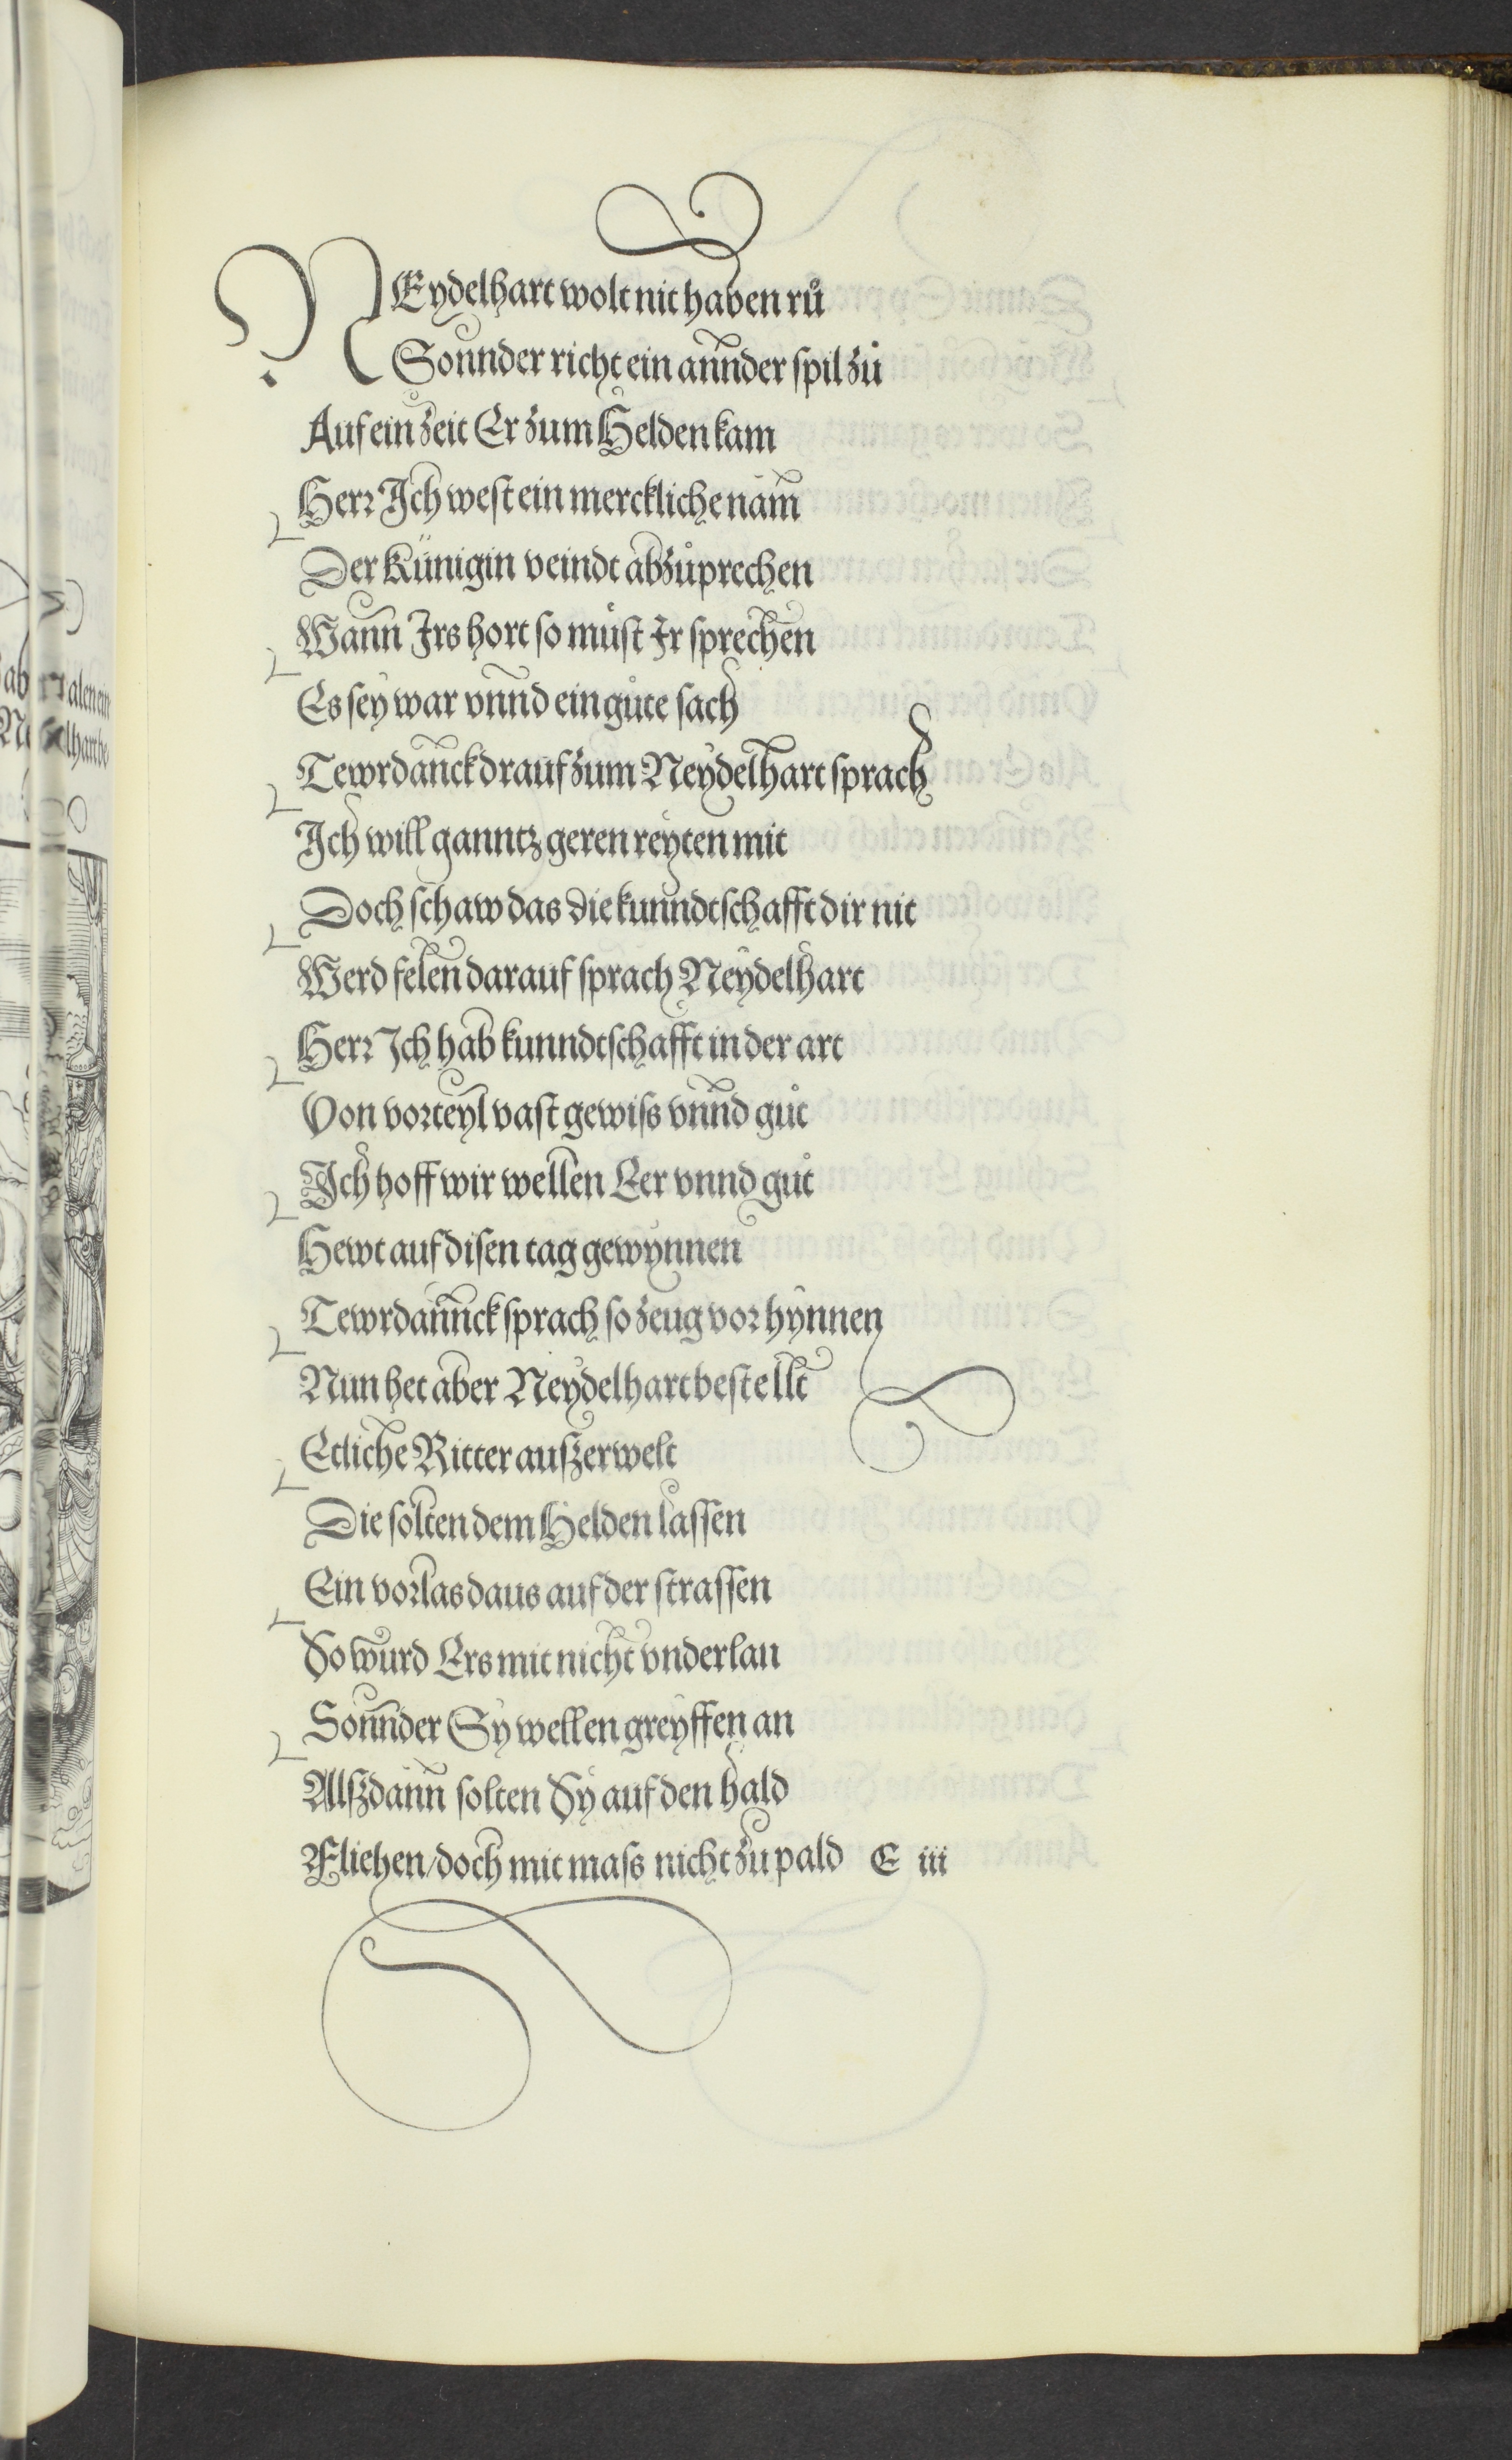 NEydelhart wolt nit haben rů
Sonnder richt ein annder spil zů
Auf ein zeit Er zum Helden kam
Herr Ich west ein merckliche nam
Der Künigin veindt abzůprechen
Wann Irs hort so můst Ir sprechen
Es sey war vnnd ein gůte sach
Tewrdanck drauf zum Neydelhart sprach
Ich will ganntz geren reyten mit
Doch schaw das die kunndtschafft dir nit
Werd felen darauf sprach Neydelhart
Herr Ich hab kunndtschafft in der art
Von vorteyl vast gewiss vnnd gůt
Ich hoff wir wellen Eer vnnd gůt
Hewt auf disen tag gewynnen
Tewrdannck sprach so zeug vor hynnen
Nun het aber Neydelhart bestellt
Etliche Ritter außerwelt
Die solten dem Helden lassen
Ein vorlas daus auf der strassen
So wurd Ers mit nicht vnderlan
Sonnder Sy wellen greyffen an
Alßdann solten Sy auf den hald
Fliehen/doch mit mass nicht zu pald E iii